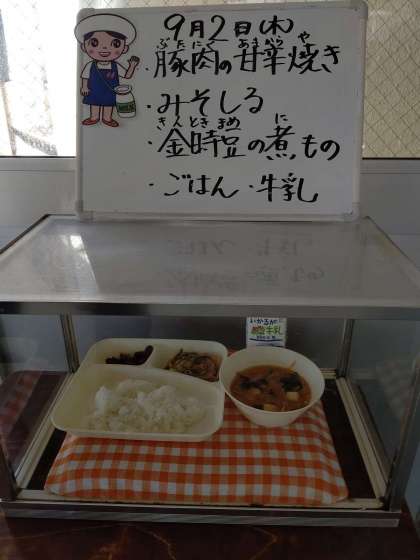 9月2日(木)
ぶたにく あまから や
・豚肉の甘辛焼き
・みそしる
きんときまめ に
・金時豆の煮もの
・ごはん・牛乳
いかるが
牛乳